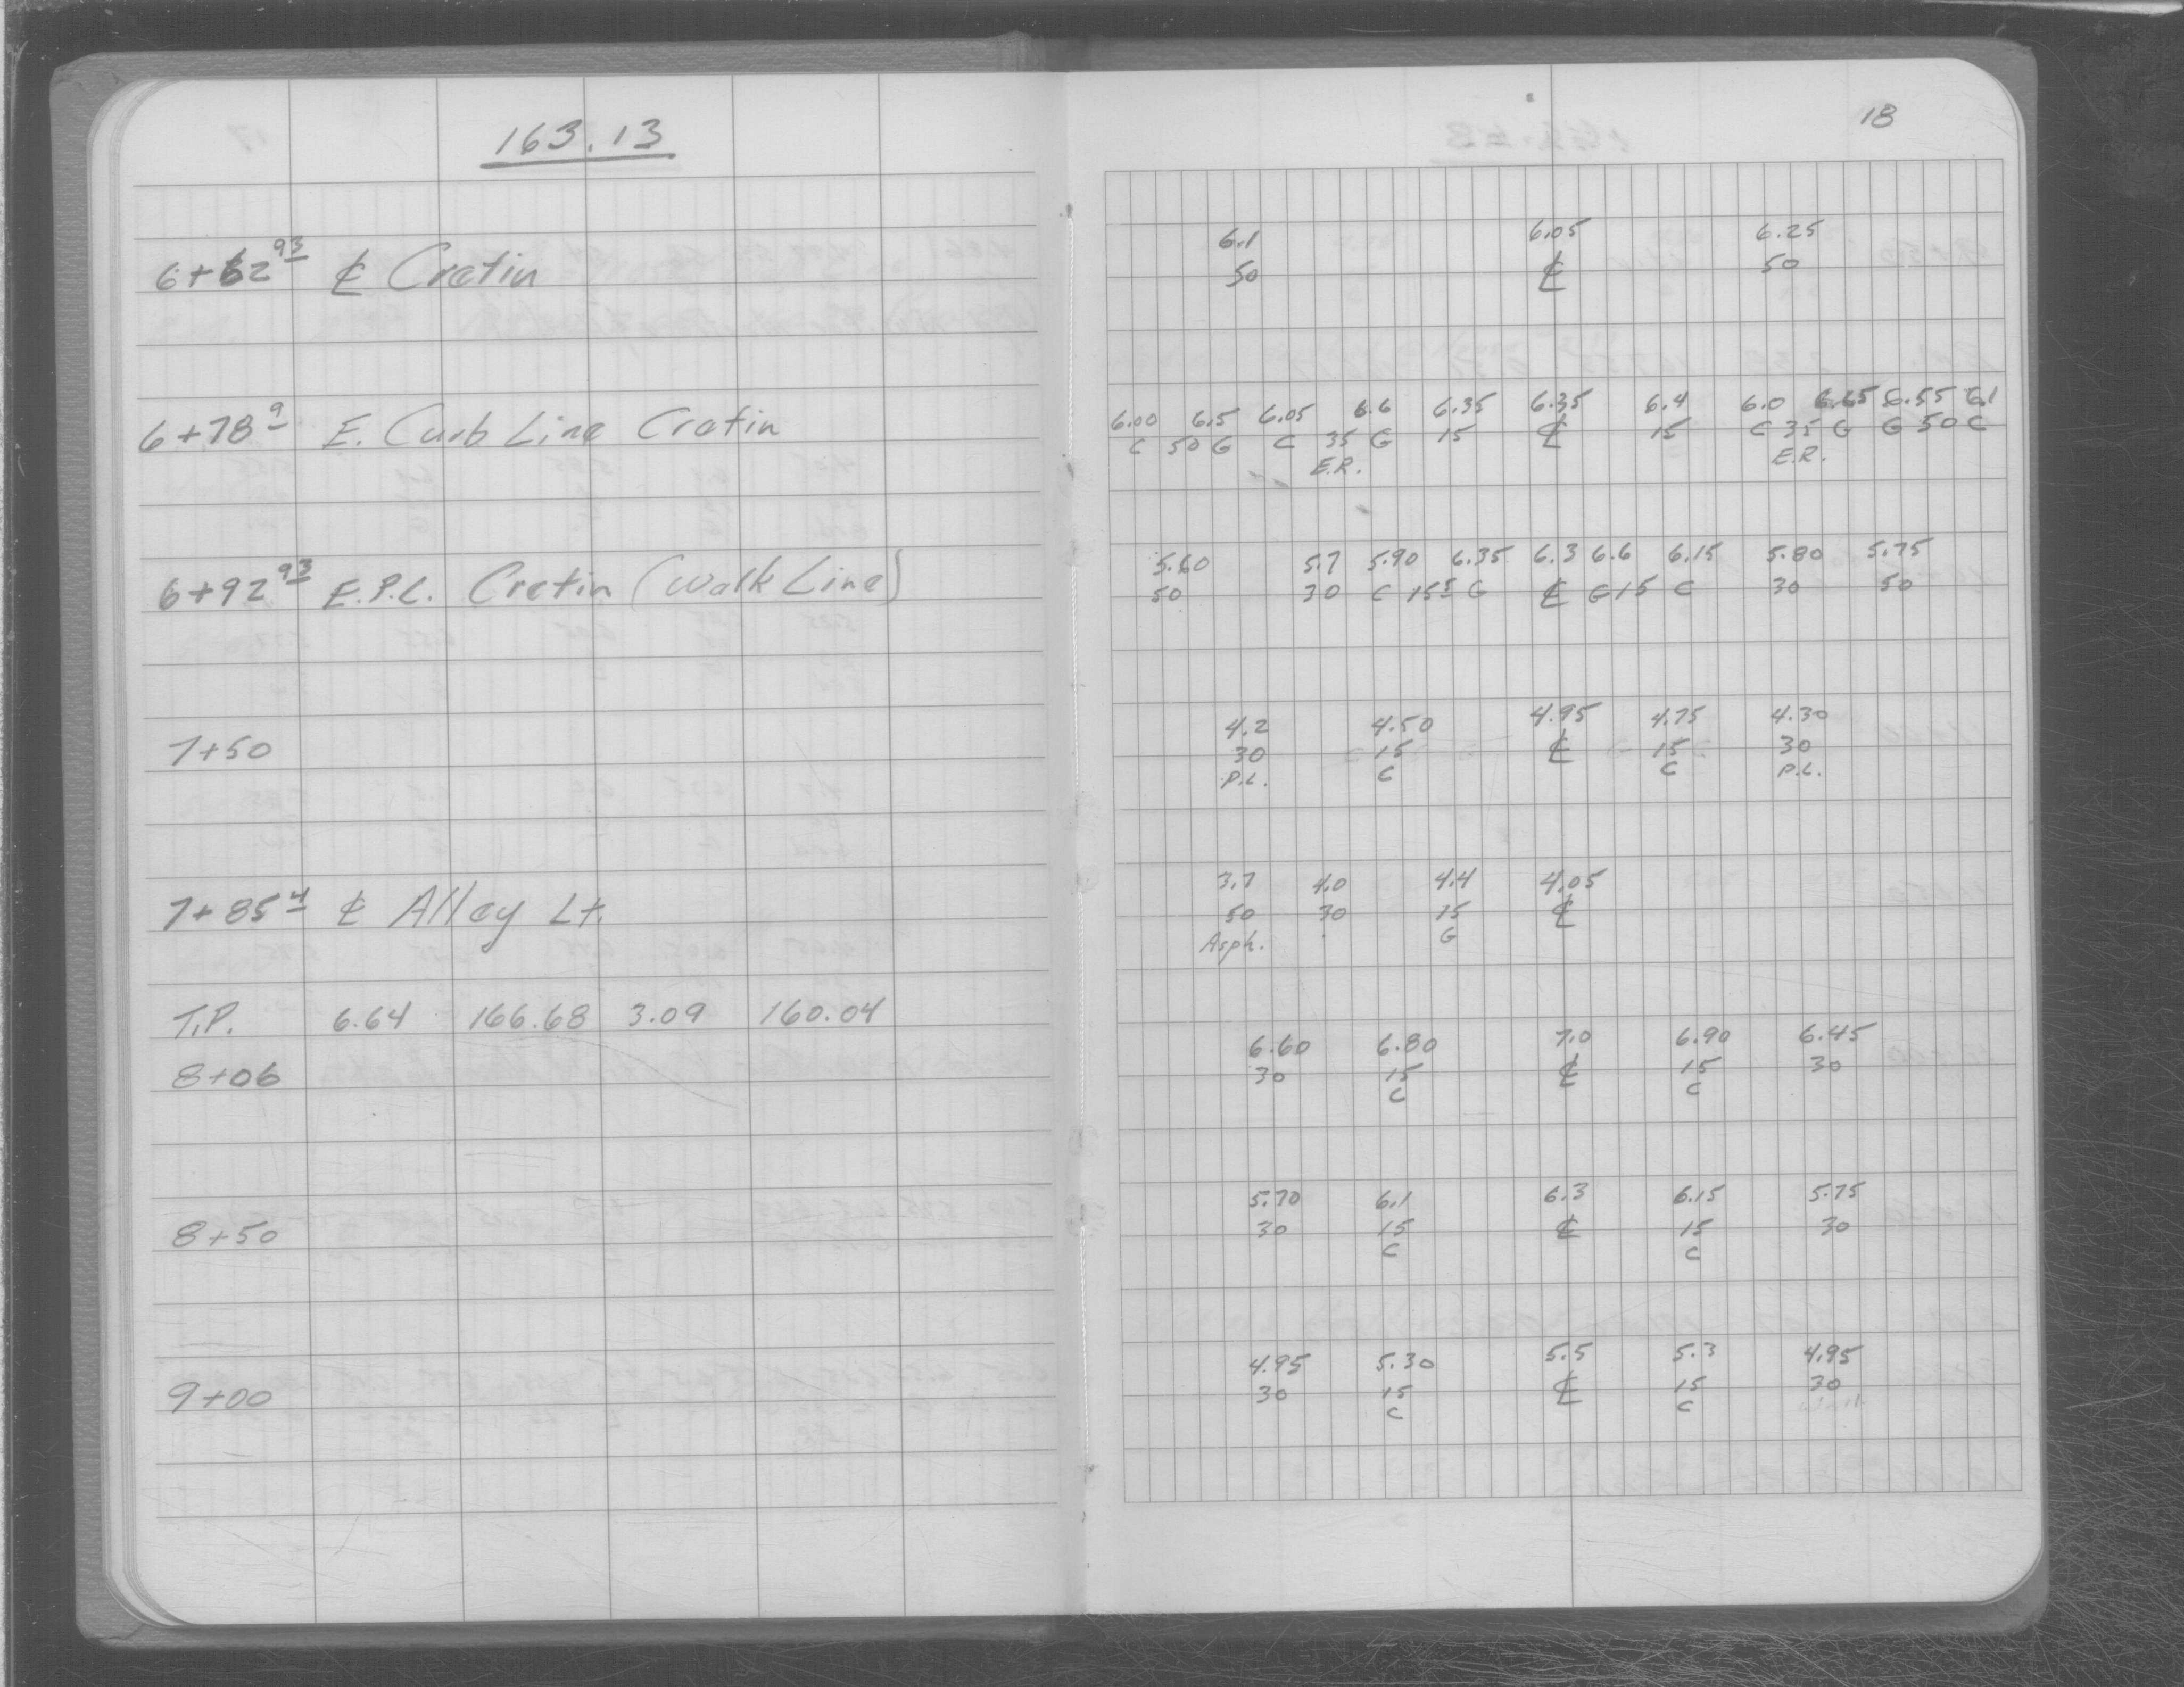 163.13
6+62 93 ℄ Cretin
6+78 9 E. Curb Line Cretin
6+92 93 E.P.L. Cretin (Walk Line)
7+50
7+85 4 ℄ Alley Lt.
T.P. 6.64 166.68 3.09 160.04
8+06
8+50
9+00
18
6.1 6.05 6.25
50 ℄ 50
6.00 6.5 6.05 6.6 6.35 6.35 6.4 6.0 6.65 6.55 6.1
C 50 G C 35 G 15 ℄ 15 C 35 G G 50 C
E.R. E.R.
5.60 5.7 5.90 6.35 6.3 6.6 6.15 5.80 5.75
50 30 C 15 5 G ℄ G 15 C 30 50
4.2 4.50 4.95 4.75 4.30
30 15 ℄ 15 30
P.L. C C P.L.
3.7 4.0 4.4 4.05
50 30 15 ℄
Asph. G
6.60 6.80 7.0 6.90 6.45
30 15 ℄ 15 30
C C
5.70 6.1 6.3 6.15 5.75
30 15 ℄ 15 30
C C
4.95 5.30 5.5 5.3 4.95
30 15 ℄ 15 30
C C